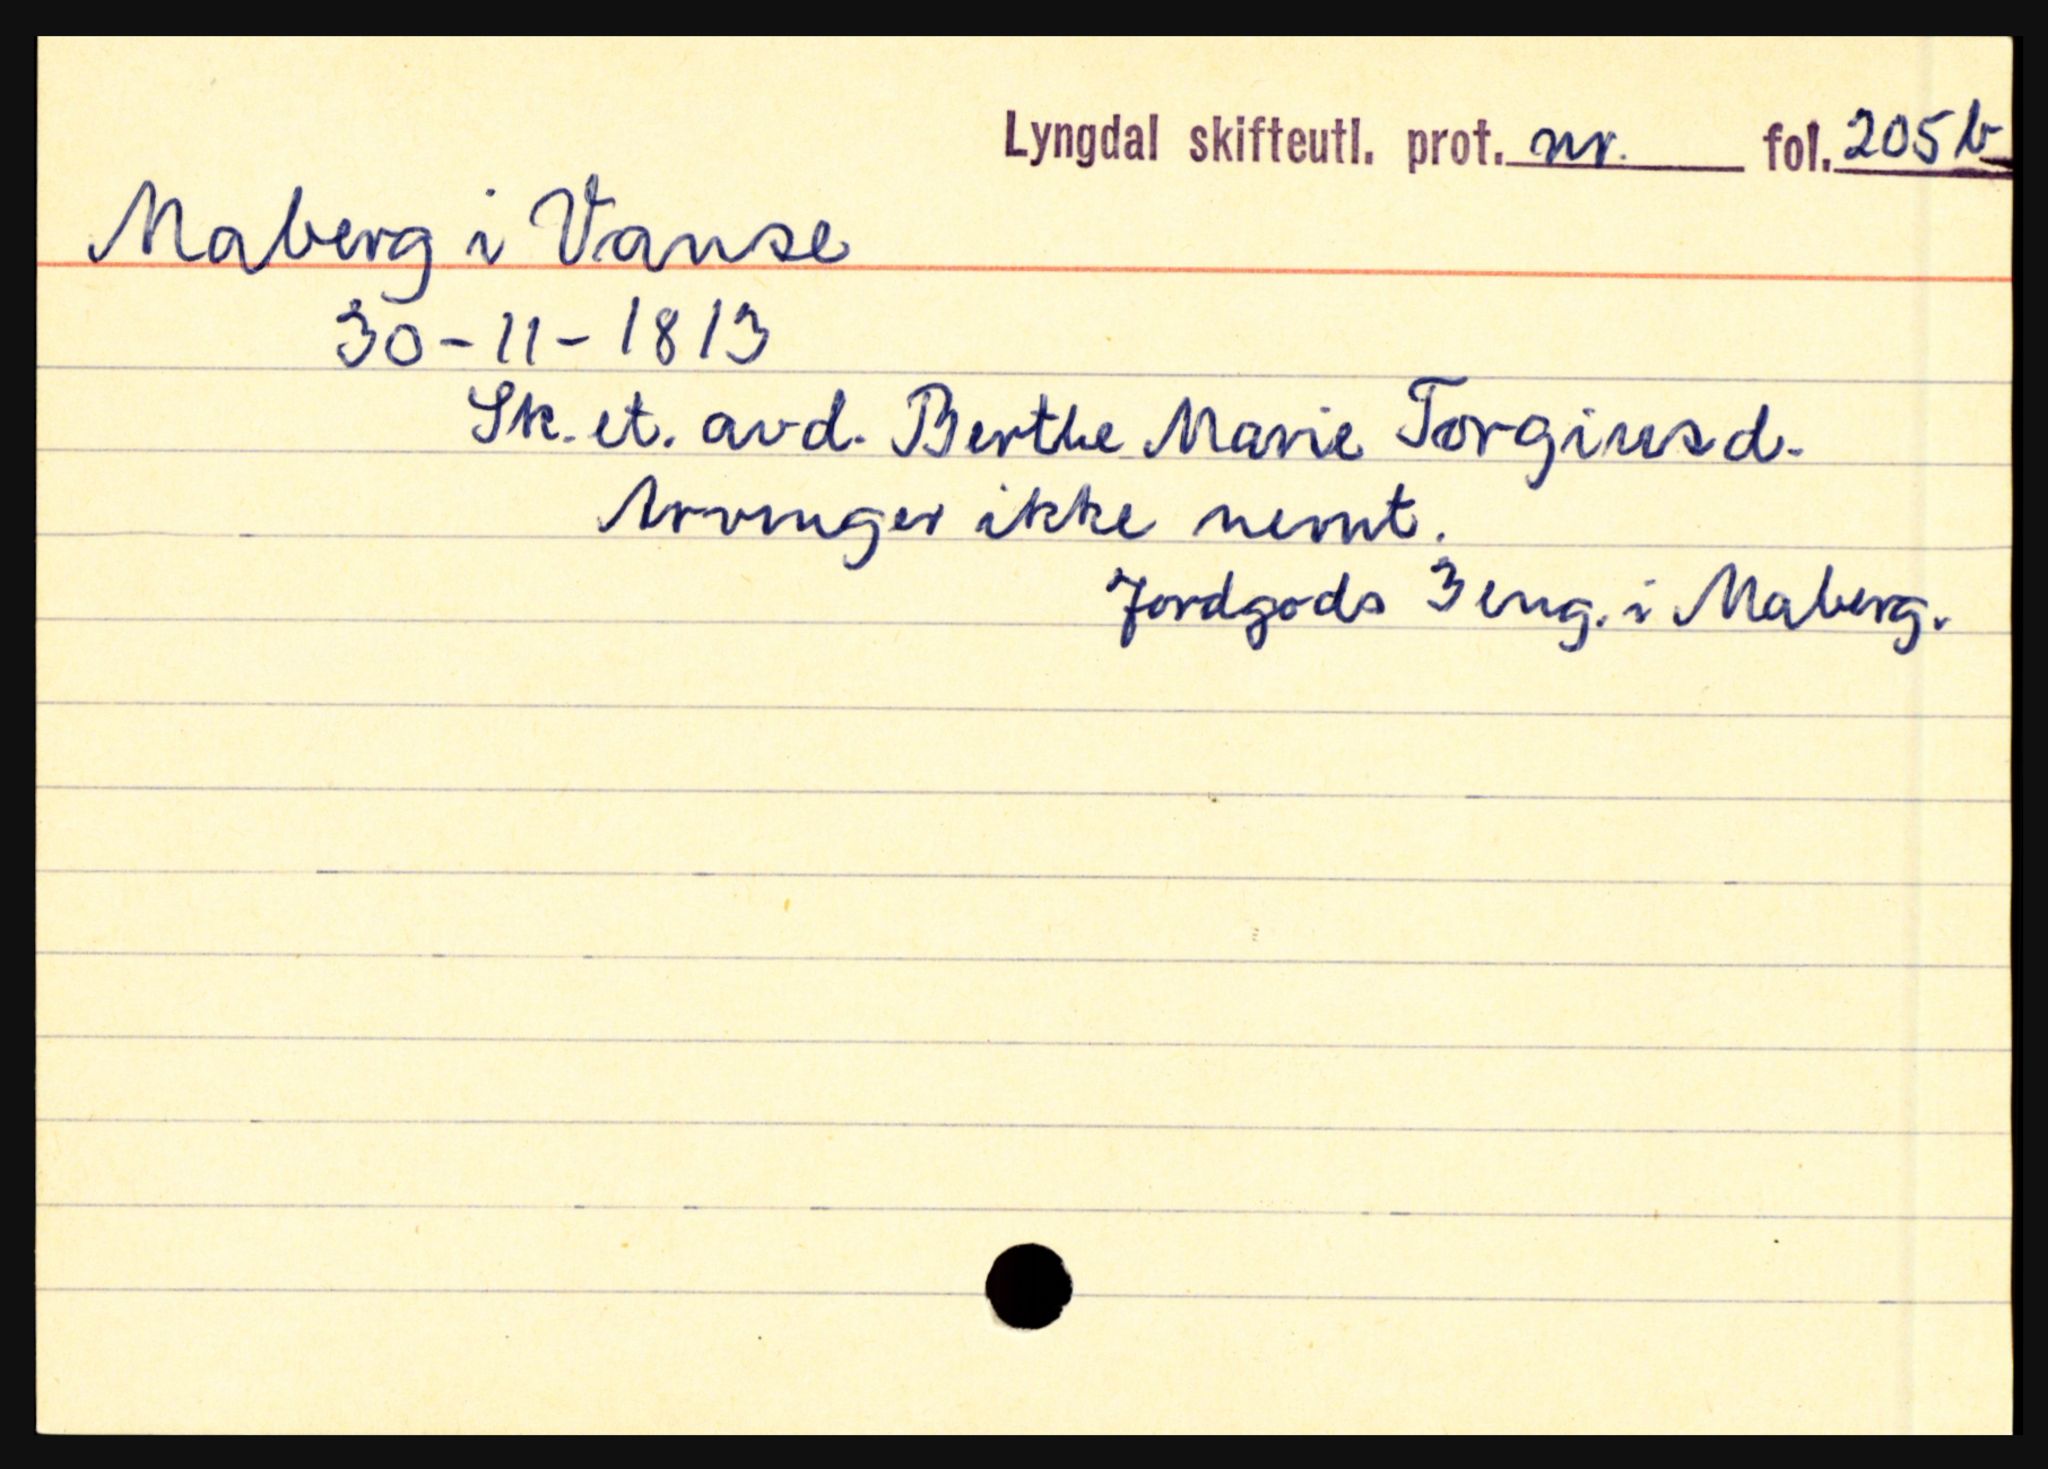 Lyngdal skifteutl. prot. nr. fol. 205b
Maberg i Vanse
30-11-1813
Sk. et. avd. Berthe Marie Torgiusd.
Arvinger ikke nevnt.
Jordgods 3 eng. i Maberg.